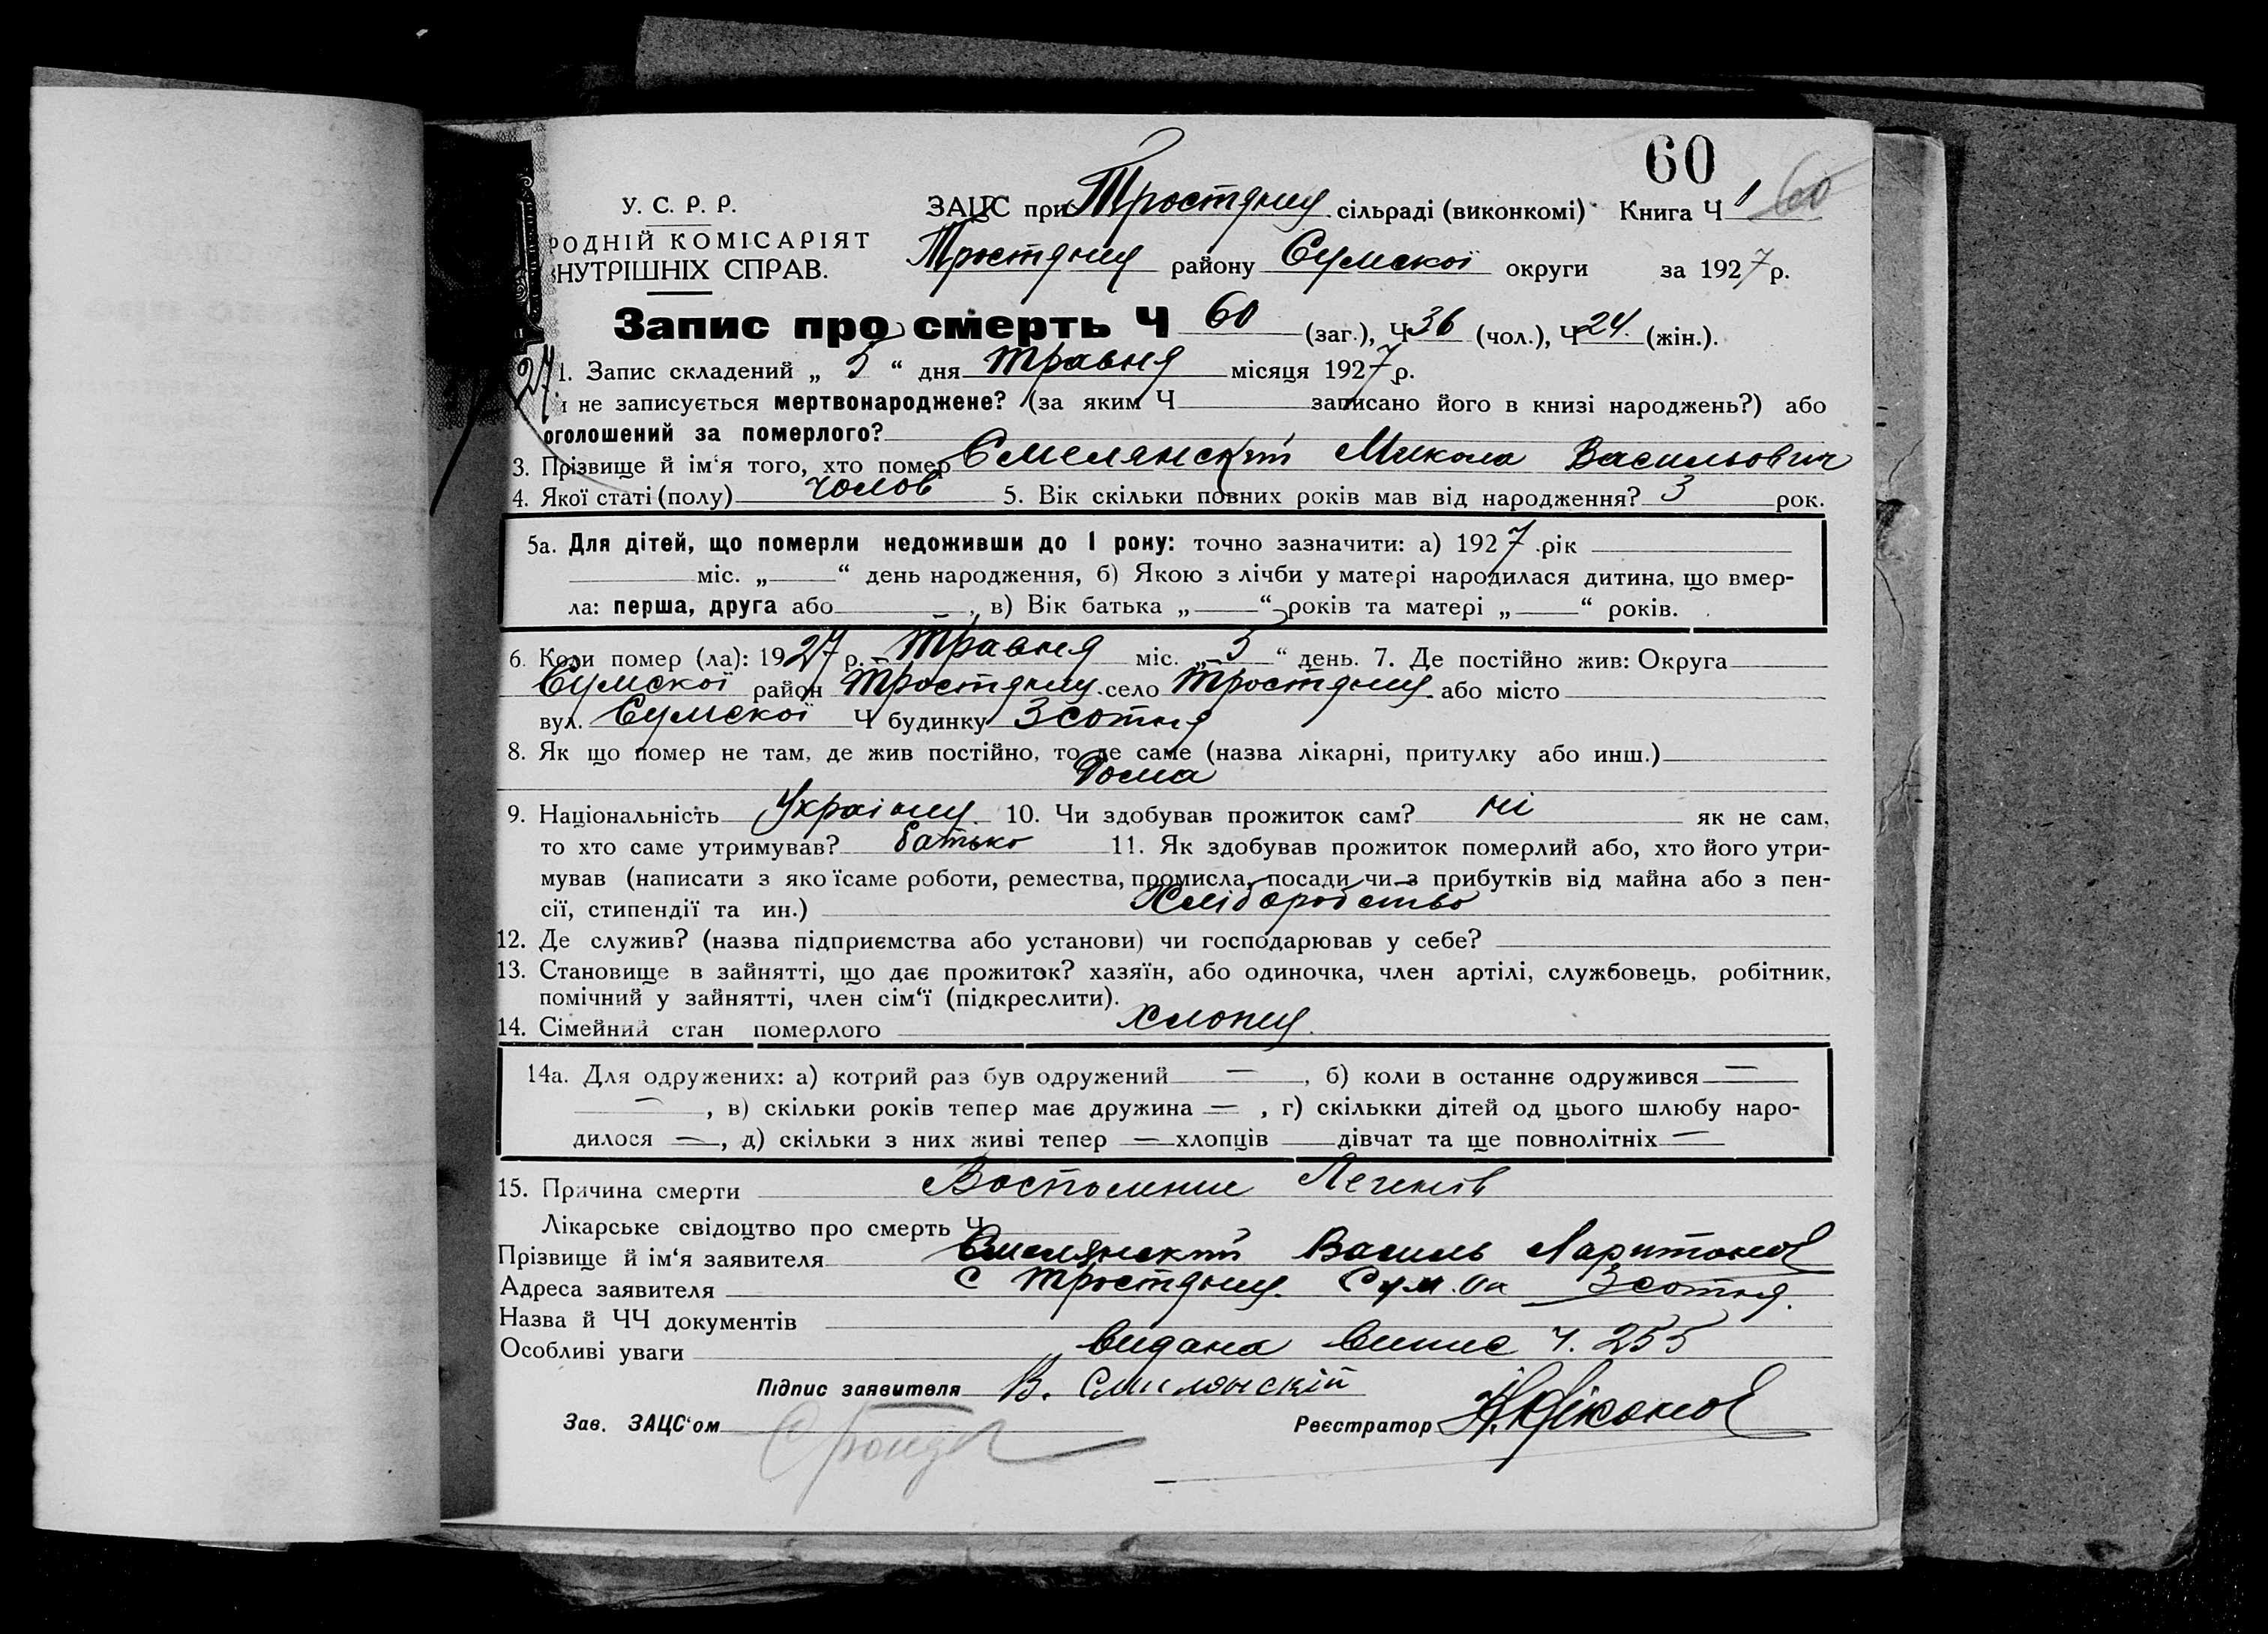 60
60
У. С. Р. Р.
РОДНІЙ КОМІСАРІЯТ
ВНУТРІШНІХ СПРАВ.
ЗАЦС при Тростянец сільраді (виконкомі) Книга Ч 1
Тростянец району Сумскої округи за 1927 р.
Запис про смерть Ч 60 (заг.), Ч 36 (чол.), Ч 24. (жін.).
27/
1. Запис складений „ 5 “ дня травня місяця 1927 р.
и не записується мертвонароджене? (за яким Ч записано його в книзі народжень?) або
оголошений за померлого?
3. Прізвище й ім‘я того, хто помер Смелянский Микола Васильович
4. Якої статі (полу) чолов 5. Вік скільки повних років мав від народження? 3 рок.
5а. Для дітей, що померли недоживши до 1 року: точно зазначити: а) 1927 рік
міс. „ “ день народження, б) Якою з лічби у матері народилася дитина, що вмер-
ла: перша, друга або , в) Вік батька „ “ років та матері „ “ років.
6. Коли помер (ла): 1927 р. Травня міс. „ 5 “ день. 7. Де постійно жив: Округа
Сумскої район Тростянец село Тростянец або місто
вул. Сумскої Ч будинку 3 сотня
8. Як що помер не там, де жив постійно, то де саме (назва лікарні, притулку або инш.)
Дома
9. Національність Украінец 10. Чи здобував прожиток сам? ні як не сам,
то хто саме утримував? батько 11. Як здобував прожиток померлий або, хто його утри-
мував (написати з яко їсаме роботи, ремества, промисла, посади чи з прибутків від майна або з пен-
сії, стипендії та ин.) Хліборобство
12. Де служив? (назва підприємства або установи) чи господарював у себе?
13. Становище в зайнятті, що дає прожиток? хазяїн, або одиночка, член артілі, службовець, робітник,
помічний у зайнятті, член сім‘ї (підкреслити).
14. Сімейний стан померлого хлопец
14а. Для одружених: а) котрий раз був одружений — , б) коли в останнє одружився —
— , в) скільки років тепер має дружина — , г) скількки дітей од цього шлюбу наро-
дилося — , д) скільки з них живі тепер — хлопців — дівчат та ще повнолітніх —
15. Причина смерти Воспоминие Легенів
Лікарське свідоцтво про смерть Ч
Прізвище й ім‘я заявителя Смелянский Василь Харитонов
Адреса заявителя С Тростянец. Сум. Ок 3 сотня.
Назва й ЧЧ документів
Особливі уваги видана випис ч. 255
Підпис заявителя В. Смилянскій
Зав. ЗАЦС‘ом
Реєстратор